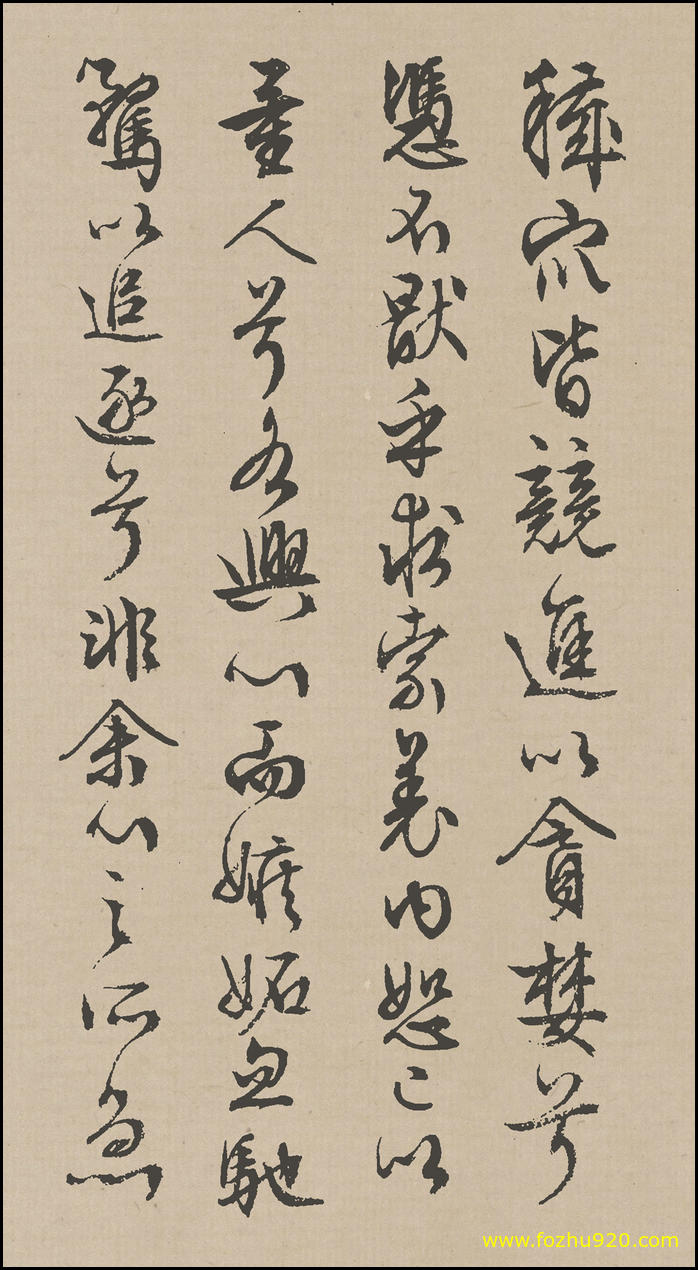 穢衆皆競進以貪婪兮
憑不猒乎求索羌内恕己以
量人兮各興心而嫉妬忽馳
騖以追逐兮非余心之所急
www.fozhu920.com